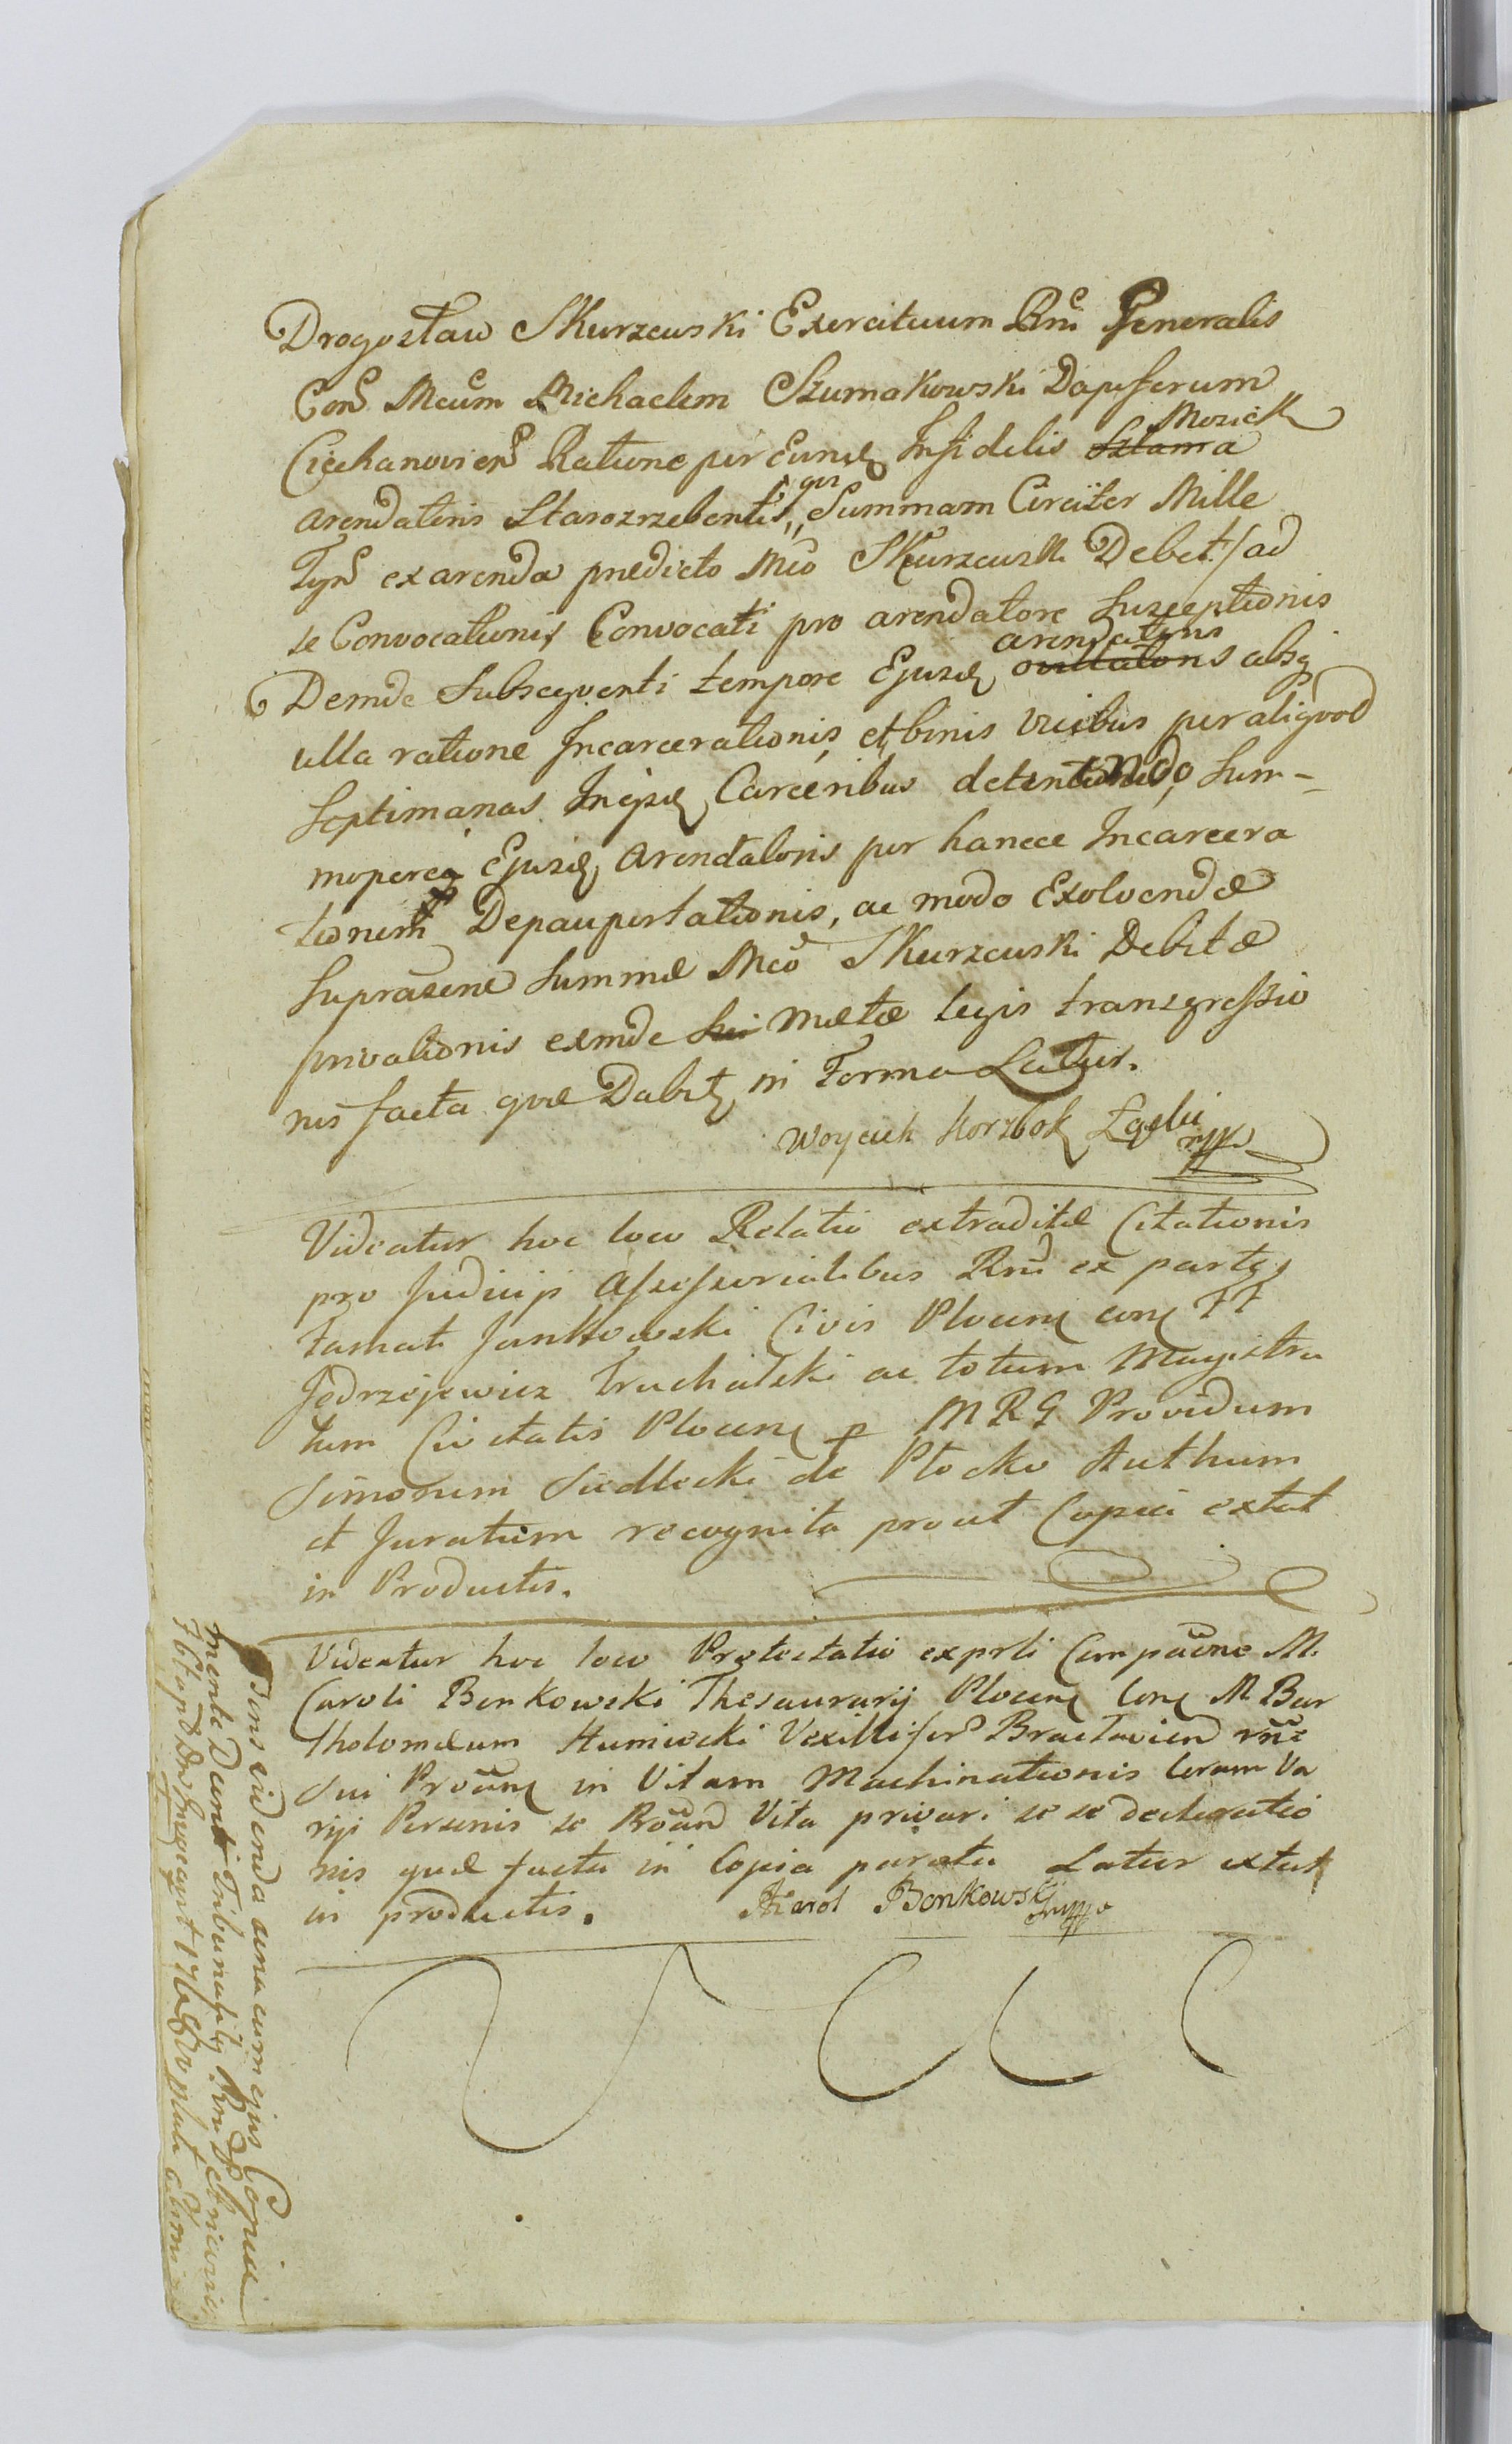 Drogosław Skurzewski Exercituum Rni Generalis
Con Mcum Michaelem Szumakowski Dapiferum
Mozick
Ciechanovien Ratione per Eund Infidelis Szlama
arendatoris Starozrzebentis, qui Summam Circiter Mille
Tyn ex arenda predicto Mco Skurzewski Debet/ad
se Convocationis Convocati pro arendatore Susceptionis
arendatoris
Deinde Subseqventi tempore Ejusd absq
ulla ratione Incarcerationis et binis vicibus per aliqvod
Septimanas Inejusd Carceribus detentando, Sum-
mopereq Ejusd Arendatoris per hancce Incarcera
tionem Depaupertationis, ac modo Exolvendæ
Suprasene Summæ Mco Skurzewski Debitæ
privationis exinde Sui Metæ legis transgressio
nis facta qvæ Dabit in Forma Latius.
Woyciech Korzbok Łącki mpp
Videatur hoc loco Relatio extraditæ Citationis
pro Judicijs Assessorialibus Rni ex parte
Famati Jankowski Civis Plocen con FF
Jędrzejewicz Truchalski ac totum Magistra
tum Civitatis Plocen p MRG Providum
Simonem Siedlecki de Płocko Authum
et Juratum recognita prout Copia extat
in Productis.
Videatur hoc loco Protestatio ex prsti Compacone M.
Caroli Bonkowski Thesaurarij Plocen Con M Bar
tholomæum Humiecki Vexilliferum Braclavien rne
sui Procun in Vitam Machinationis Coram Va
rijs Personis se Procand Vita privari se se declaratio
nis quæ facta in Copia parata Latius extat
in productis.
Karol Bonkowski mppo
Tens videnda una cum ejus Copia
mente Decreti Tribunalis Rni Petricovien